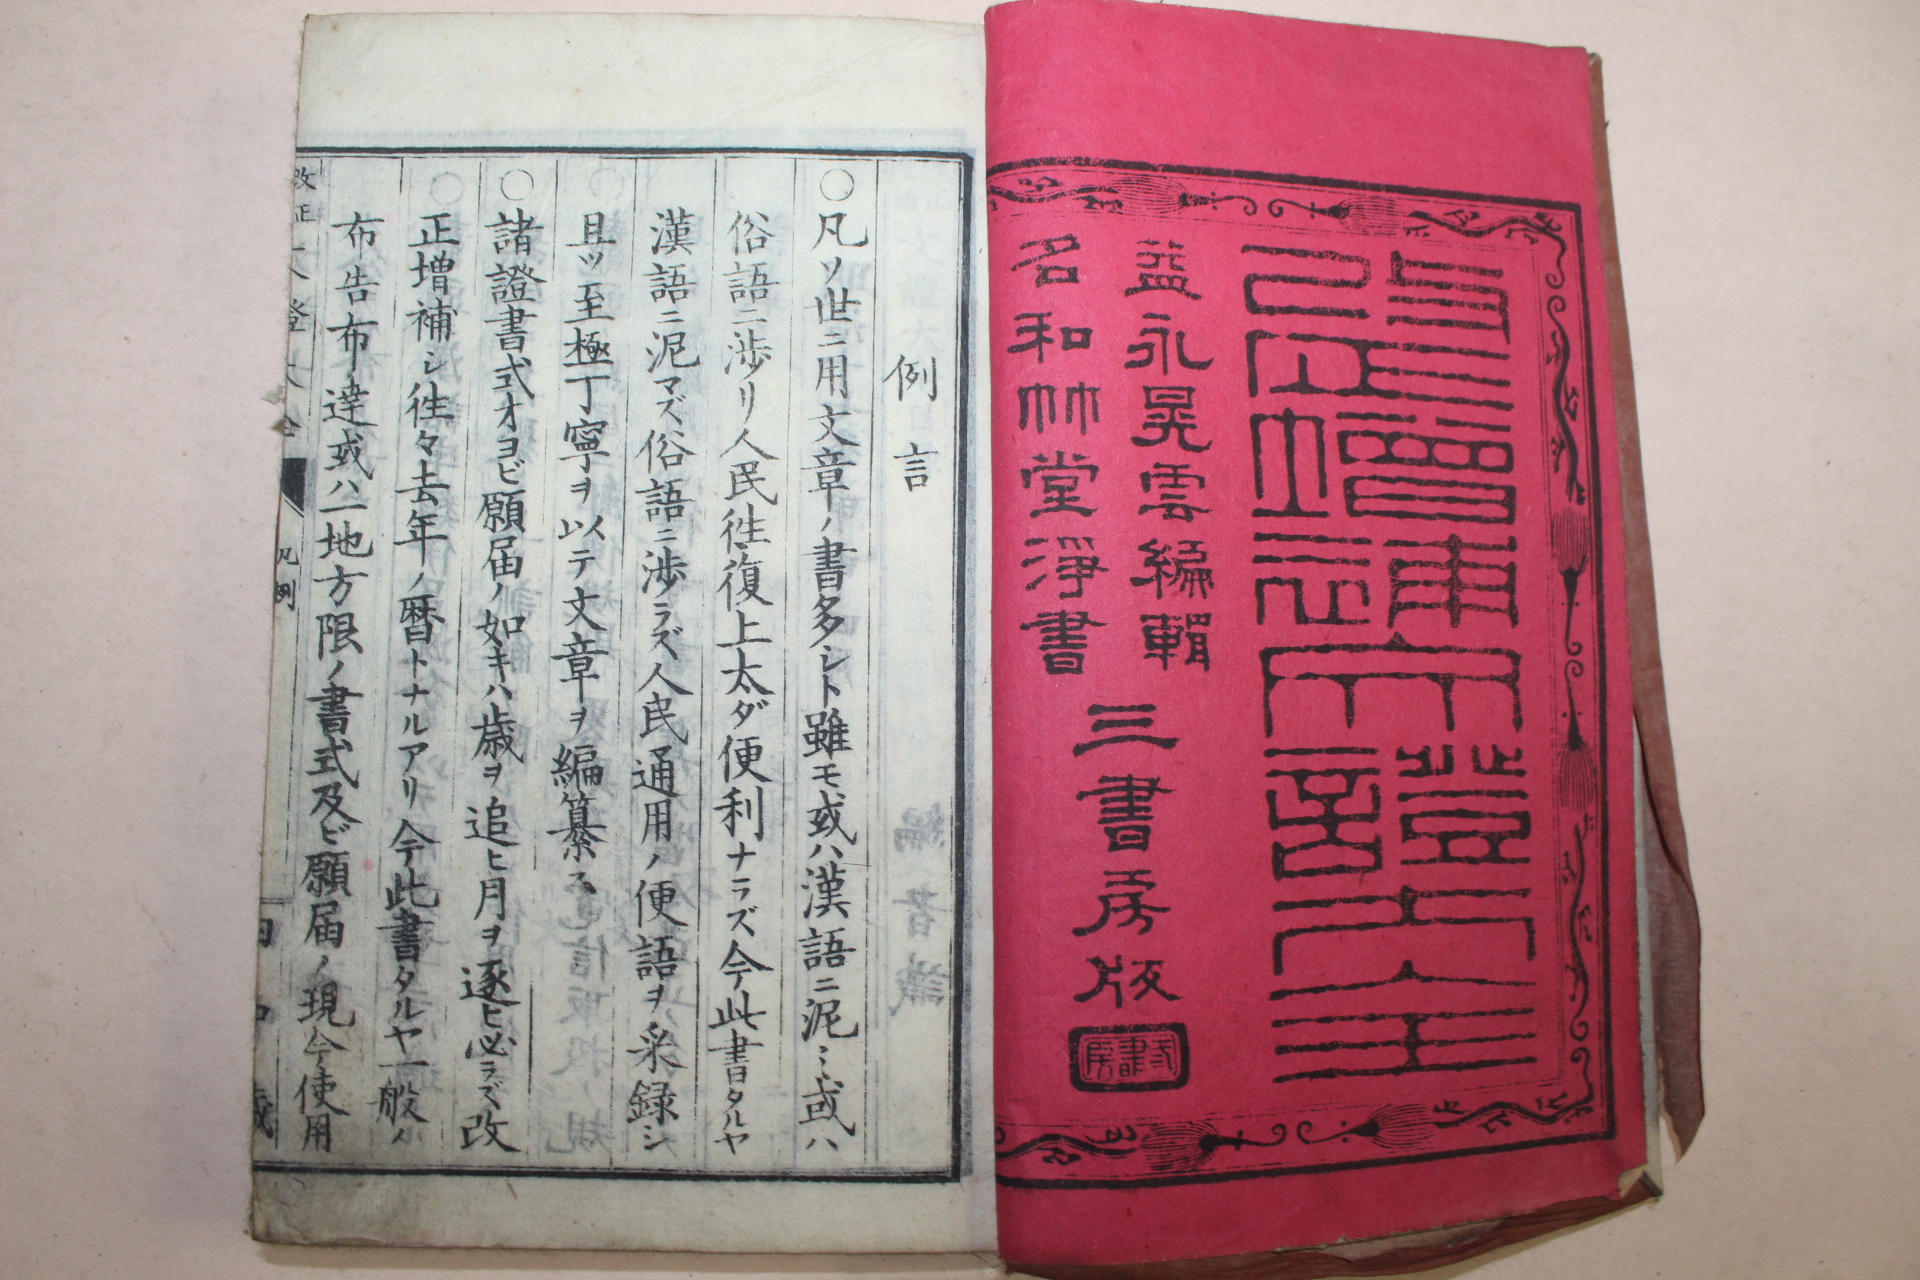 益永晃雲編輯
名和竹堂淨書
三書房版
例言
○凡ソ世ニ用文章ノ書多シト雖モ或ハ漢語ニ泥ミ或ハ
俗語ニ渉リ人民徃復上太ダ便利ナラズ今此書タルヤ
漢語ニ泥マズ俗語ニ渉ラズ人民通用ノ便語ヲ采録シ
且ツ至極丁寧ヲ以テ文章ヲ編纂ス
○諸證書式オヨビ願届ノ如キハ歳ヲ追ヒ月ヲ逐ヒ必ラズ改
正増補シ徃々去年ノ暦トナルアリ今此書タルヤ一般ノ
布告布達或ハ一地方限ノ書式及ビ願届ノ現今使用
凡例